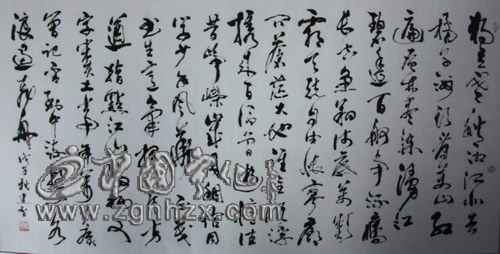 独立寒秋湘江北去
橘子洲头看万山红
遍层林尽染漫江
碧透百舸争流鹰
击长空鱼翔浅底万类
霜天竞自由怅寥廓
问苍茫大地谁主沉浮
携来百侣曾游忆往
昔峥嵘岁月稠恰同
学少年风华正茂
书生意气挥斥方
遒指点江山激扬文
字粪土当年万户侯
曾记否到中流击水
浪遏飞舟 戊子秋
www.zghhzx.com